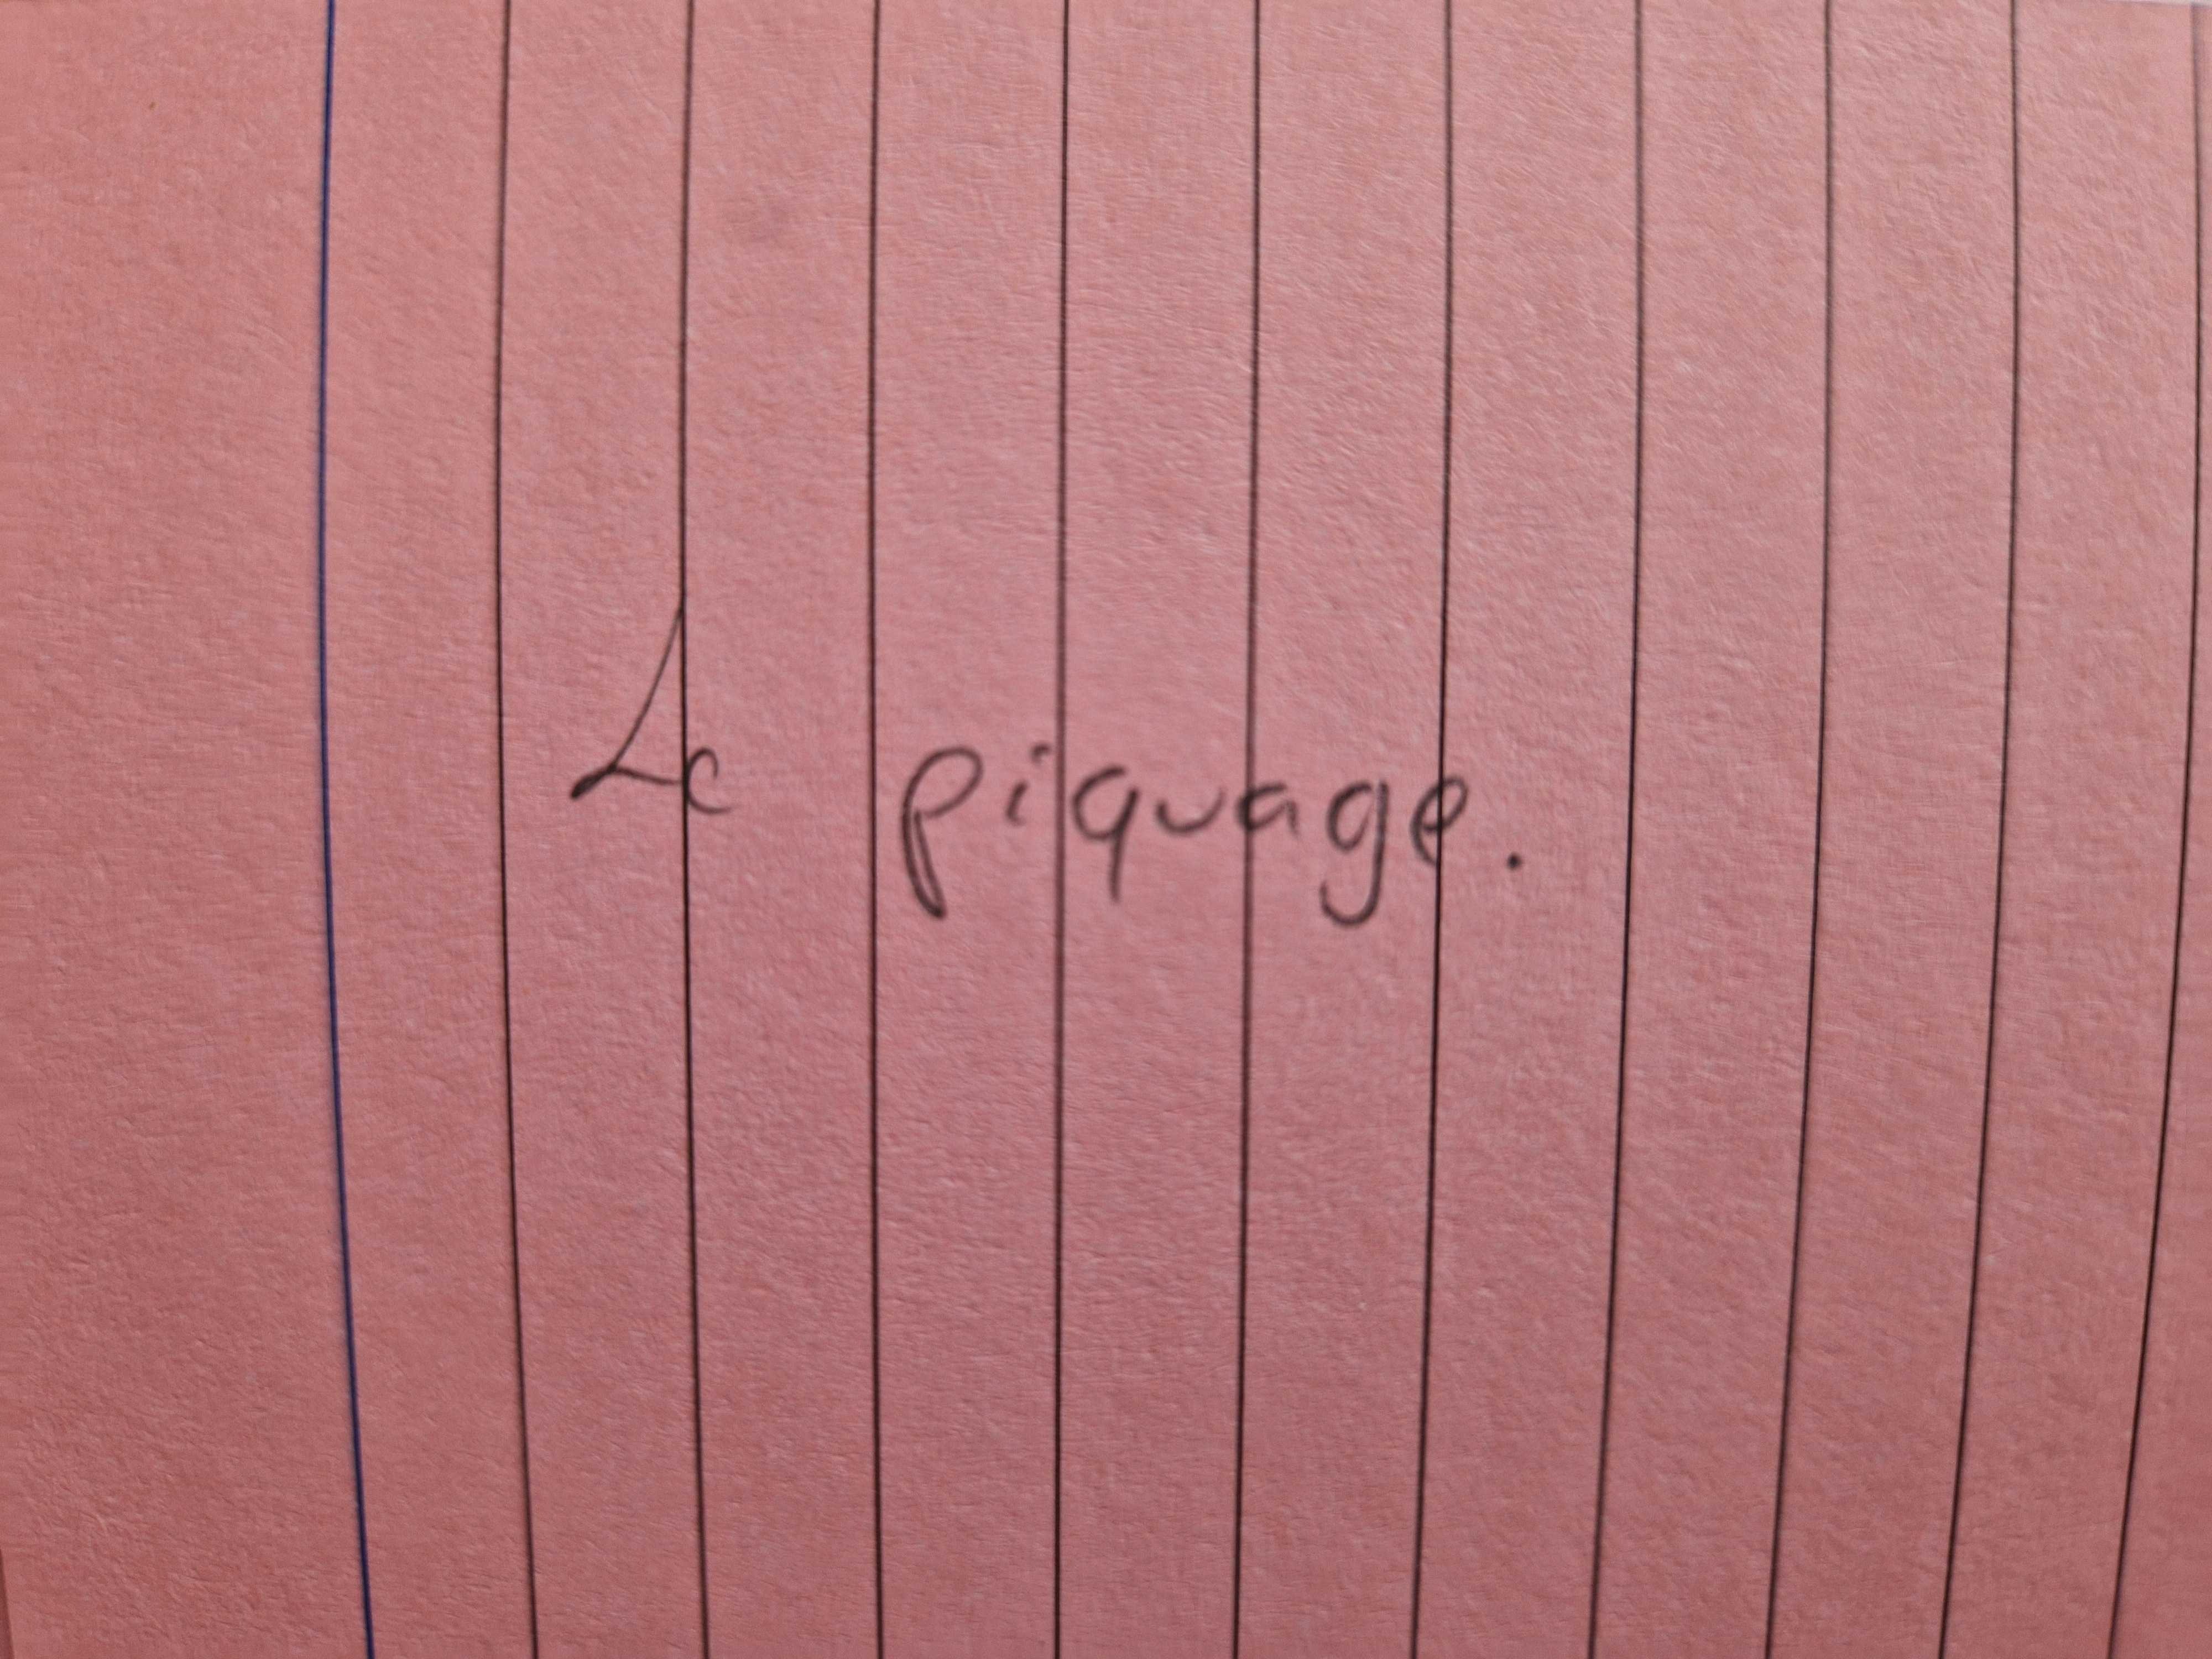 Le piquage.